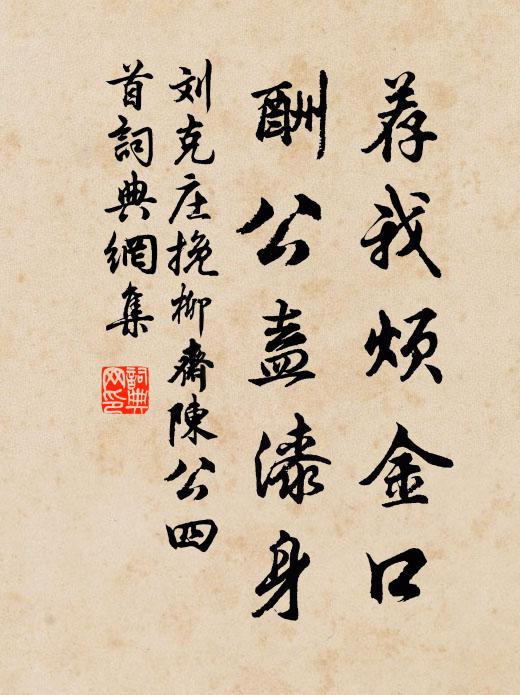 荐我烦金口
酬公盍漆身
刘克庄挽柳斋陳公四
首詞典網集
詞典
网印